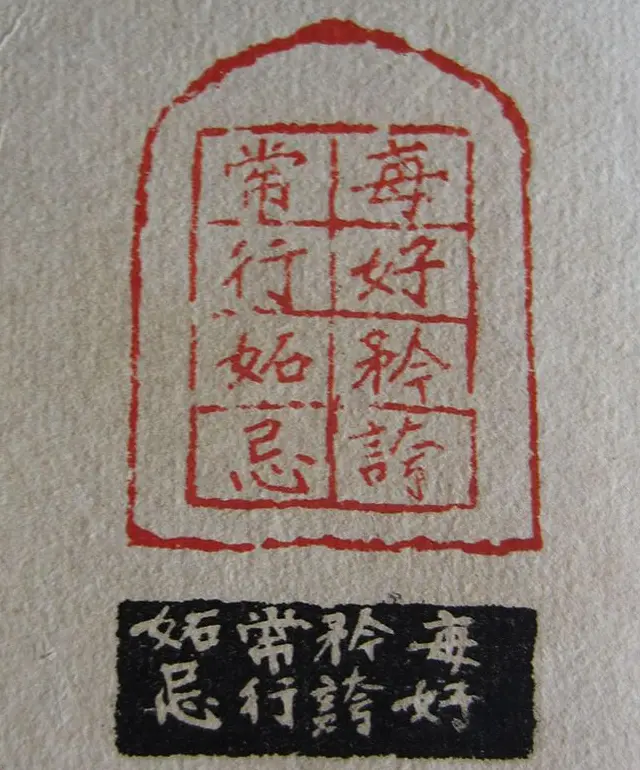 每好矜誇
常行妬忌
每好
矜誇
常行
妬忌